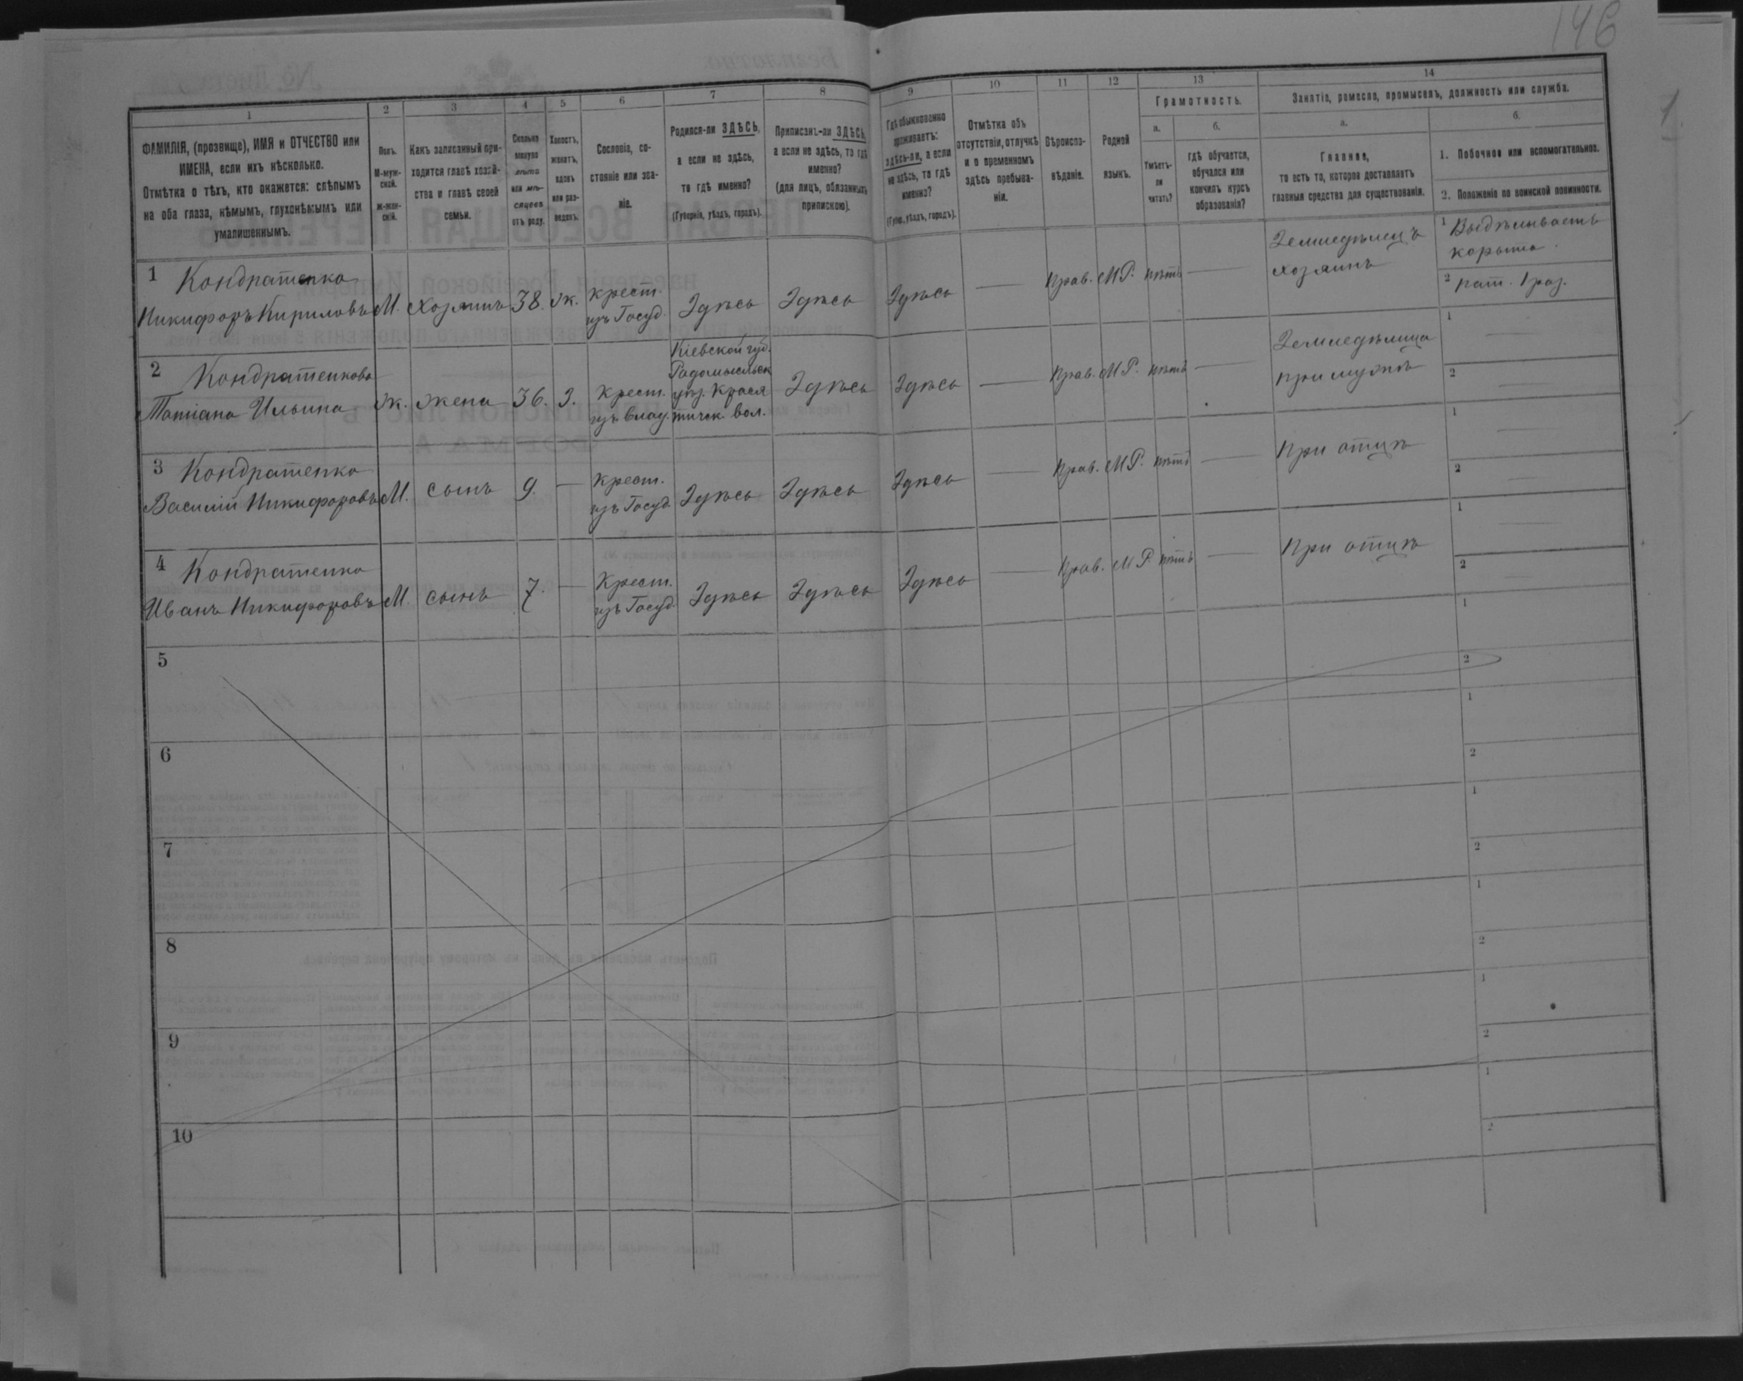 146
1
1
ФАМИЛІЯ, (прозвище), ИМЯ и ОТЧЕСТВО или
ИМЕНА, если ихъ нѣсколько.
Отмѣтка о тѣхъ, кто окажется: слѣпымъ
на оба глаза, нѣмымъ, глухонѣмымъ или
умалишеннымъ.
2
Полъ.
М-муж-
ской.
ж-жен-
скій.
3
Какъ записанный при-
ходится главѣ хозяй-
ства и главѣ своей
семьи.
4
Сколько
минуло
лѣтъ
или мѣ-
сяцевъ
отъ роду.
5
Холостъ,
женатъ,
вдовъ
или раз-
веденъ.
6
Сословіе, со-
стояніе или зва-
ніе.
7
Родился-ли ЗДѢСЬ,
а если не здѣсь,
то гдѣ именно?
(Губернія, уѣздъ, городъ).
8
Приписанъ-ли ЗДѢСЬ,
а если не здѣсь, то гдѣ
именно?
(для лицъ, обязанныхъ
припискою).
9
Гдѣ обыкновенно
проживаетъ:
здѣсь-ли, а если
не здѣсь, то гдѣ
именно?
(Губер., уѣздъ, городъ).
10
Отмѣтка объ
отсутствіи, отлучкѣ
и о временномъ
здѣсь пребыва-
ніи.
11
Вѣроиспо-
вѣданіе.
12
Родной
языкъ.
13
Грамотность.
а.
Умѣетъ-
ли
читать?
б.
гдѣ обучается,
обучался или
кончилъ курсъ
образованія?
14
Занятіе, ремесло, промыселъ, должность или служба.
а.
Главное,
то есть то, которое доставляетъ
главныя средства для существованія.
б.
1. Побочное или вспомогательное.
2. Положеніе по воинской повинности.
1 Кондратенко
Никифоръ Кириловъ М. хозяинъ 38. ж. крест. изъ Госуд. Здѣсь Здѣсь Здѣсь — Прав. М.Р. нѣтъ —
Земледѣлецъ
хозяинъ
1 Выдѣлываетъ
корыта.
2 рат. 1 раз.
2 Кондратенкова
Татіана Ильина ж. жена 36. З. Крест. изъ влад.
Кіевской губ.
Радомысльск
уѣз. Крася
тичек. вол.
Здѣсь Здѣсь — Прав. М.Р. нѣтъ —
Земледѣлица
при мужѣ
1 —
2 —
3 Кондратенко
Василій Никифоровъ М. сынъ 9. — Крест. изъ Госуд Здѣсь Здѣсь Здѣсь — Прав. М.Р. нѣтъ — При отцѣ
1 —
2 —
4 Кондратенко
Иванъ Никифоровъ М. сынъ 7. — Крест. изъ Госуд Здѣсь Здѣсь Здѣсь — Прав. М.Р. нѣтъ — При отцѣ
1 —
2 —
5
1
2
6
1
2
7
1
2
8
1
2
9
1
2
10
1
2